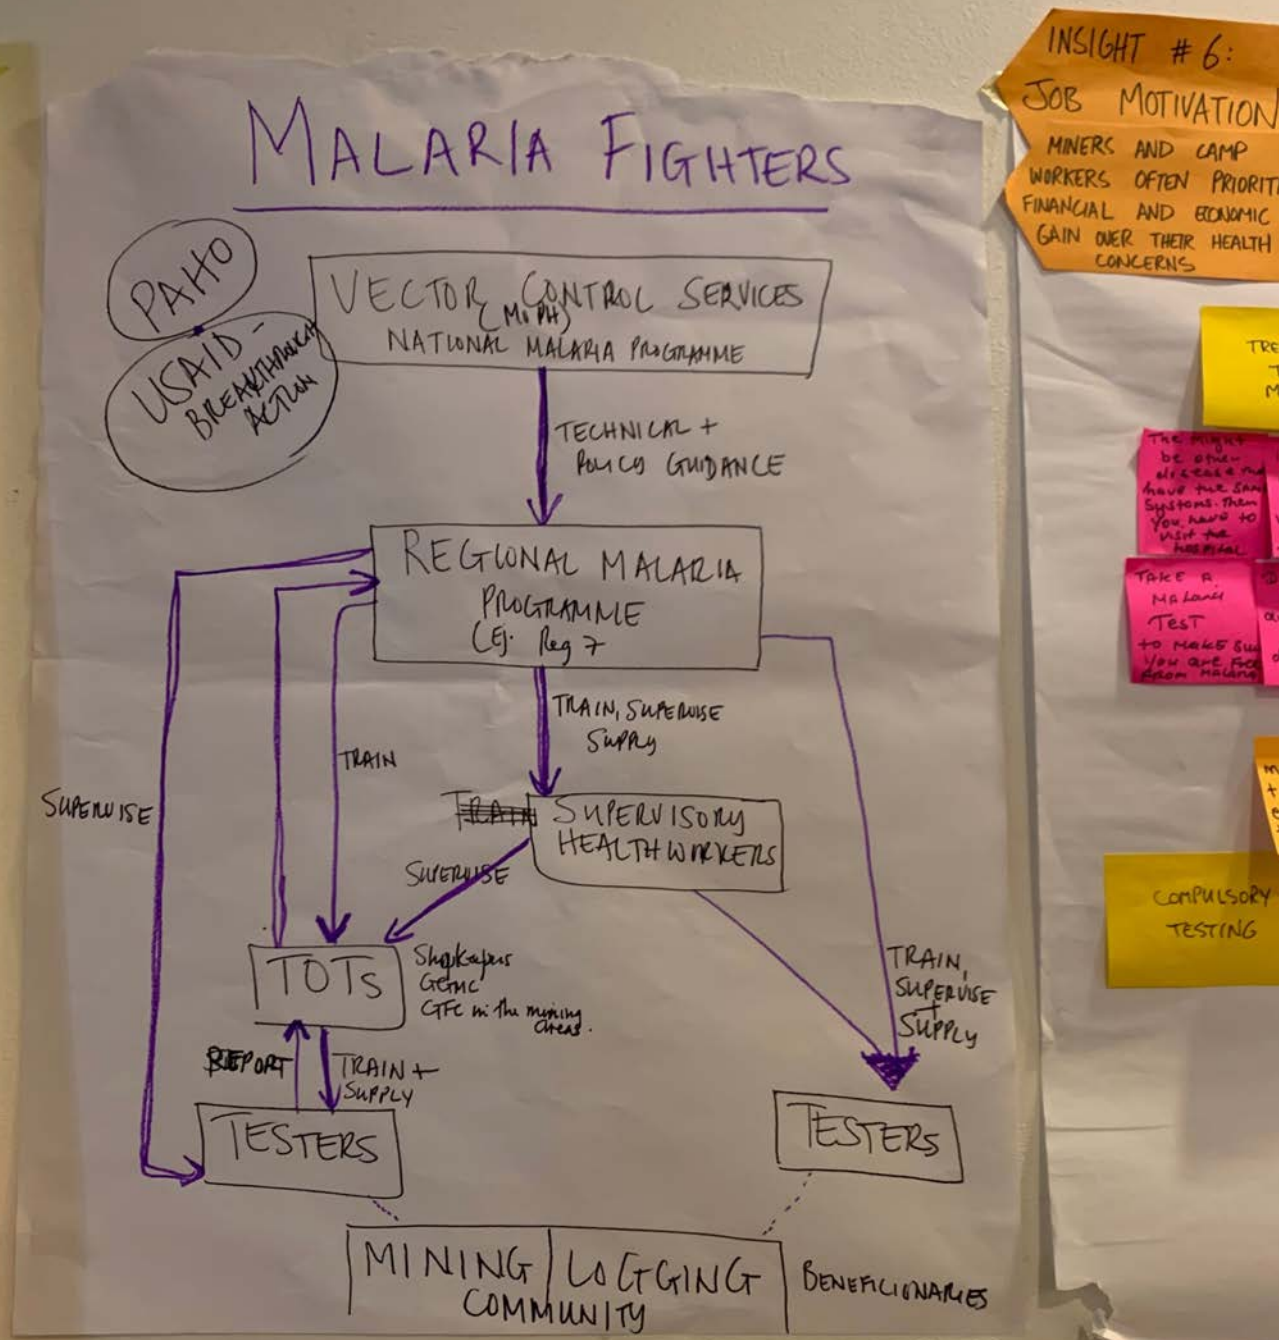 MALARIA FIGHTERS
PAHO
USAID-
BREAKTHROUGH
ACTION
VECTOR CONTROL SERVICES
(MoPH)
NATIONAL MALARIA PROGRAMME
TECHNICAL +
POLICY GUIDANCE
REGIONAL MALARIA
PROGRAMME
(Eg. Reg 7
TRAIN, SUPERVISE
SUPPLY
TRAIN
SUPERVISE
SUPERVISORY
HEALTH WORKERS
SUPERVISE
TOTs
Shopkeepers
GGMC
GFC in the mining
areas.
TRAIN,
SUPERVISE
+
SUPPLY
REPORT
TRAIN +
SUPPLY
TESTERS
TESTERS
MINING | LOGGING
COMMUNITY
BENEFICIONARIES
INSIGHT # 6:
JOB MOTIVATION
MINERS AND CAMP
WORKERS OFTEN PRIORITI
FINANCIAL AND ECONOMIC
GAIN OVER THEIR HEALTH
CONCERNS
TRE
T
M
The might
be other
disease
have the
Systoms. Then
You have to
visit the
hospital
TAKE A
MALARIA
TEST
to MAKE SU
You are FREE
FROM MALARIA
COMPULSORY
TESTING